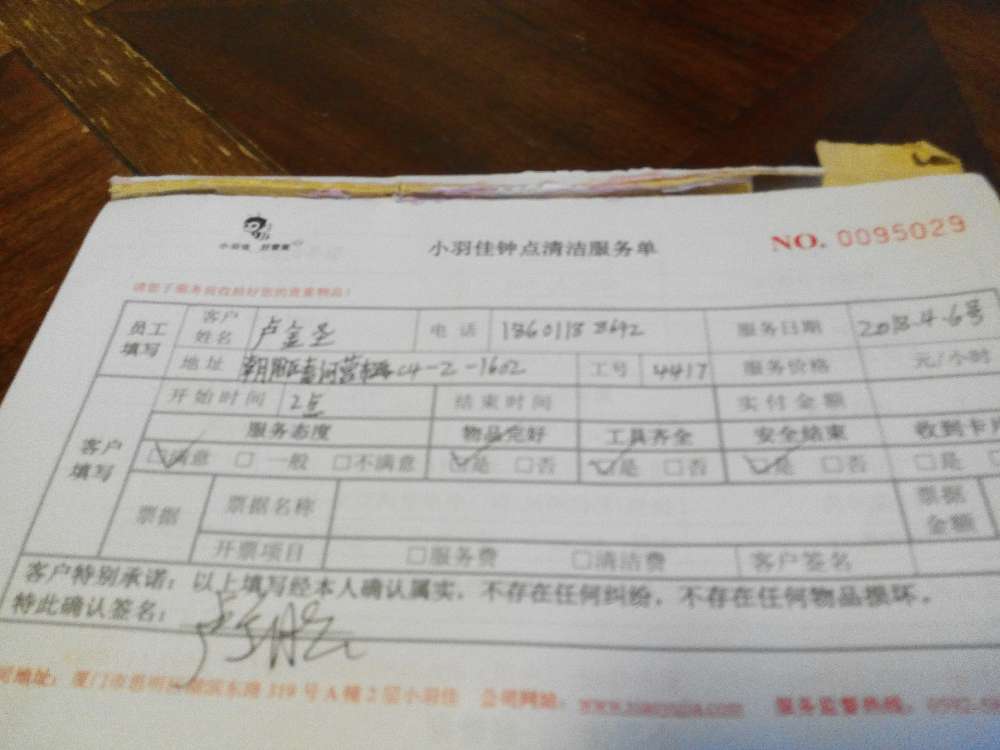 小羽佳 好管家
小羽佳钟点清洁服务单
NO. 0095029
员工填写 客户姓名 电话 18601188642 服务日期 2018-4-6号
地址 C4-2-1602 工号 4417 服务价格 元/小时
客户填写 开始时间 2点 结束时间 实付金额
服务态度 物品完好 工具齐全 安全结束 收到卡片
☑满意 □一般 □不满意 ☑是 □否 ☑是 □否 ☑是 □否 □是
票据 票据名称 票据金额
开票项目 □服务费 □清洁费 客户签名
客户特别承诺：以上填写经本人确认属实，不存在任何纠纷，不存在任何物品损坏。
特此确认签名：
司地址：厦门市思明区湖滨东路319号A幢2层小羽佳 公司网站： 服务监督热线：0592-